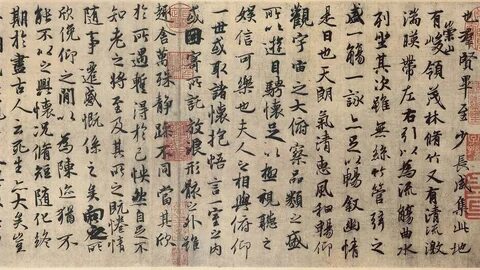 也羣賢畢至少長咸集此地
有崇山峻領茂林脩竹又有清流激
湍暎帶左右引以為流觴曲水
列坐其次雖無絲竹管弦之
盛一觴一詠亦足以暢敘幽情
是日也天朗氣清惠風和暢仰
觀宇宙之大俯察品類之盛
所以遊目騁懷足以極視聽之
娛信可樂也夫人之相與俯仰
一世或取諸懷抱悟言一室之內
或因寄所託放浪形骸之外雖
趣舍萬殊靜躁不同當其欣
於所遇暫得於己怏然自足不
知老之將至及其所之既惓情
隨事遷感慨係之矣向之所
欣俛仰之閒以為陳迹猶不
能不以之興懷況脩短隨化終
期於盡古人云死生亦大矣豈